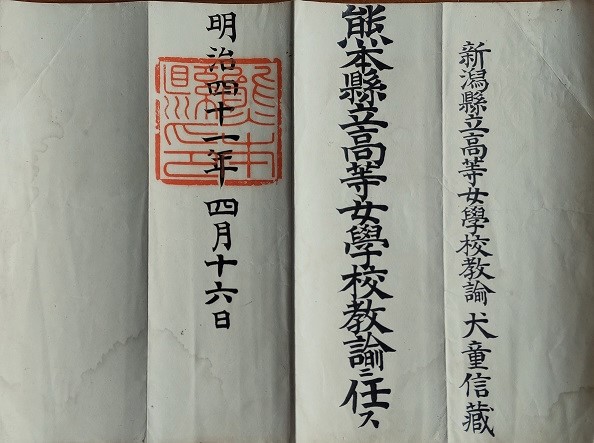 新潟縣立高等女學校教諭 犬童信藏
熊本縣立高等女學校教諭ニ任ス
明治四十一年四月十六日
熊本縣印